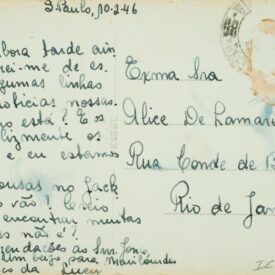 S. Paulo, 10-2-46
bora tarde ain
rei-me de es
gumas linhas
noticias nossas.
está? E os
lizmente os
e eu estamos
ousas no Jack
vão?
encontrar muitas
es não é?
mendações ao Snr.
um beijo para Marilourdes
es da Lucy
Exma Sra
Alice De Lamare
Rua Conde de B
Rio de Jan